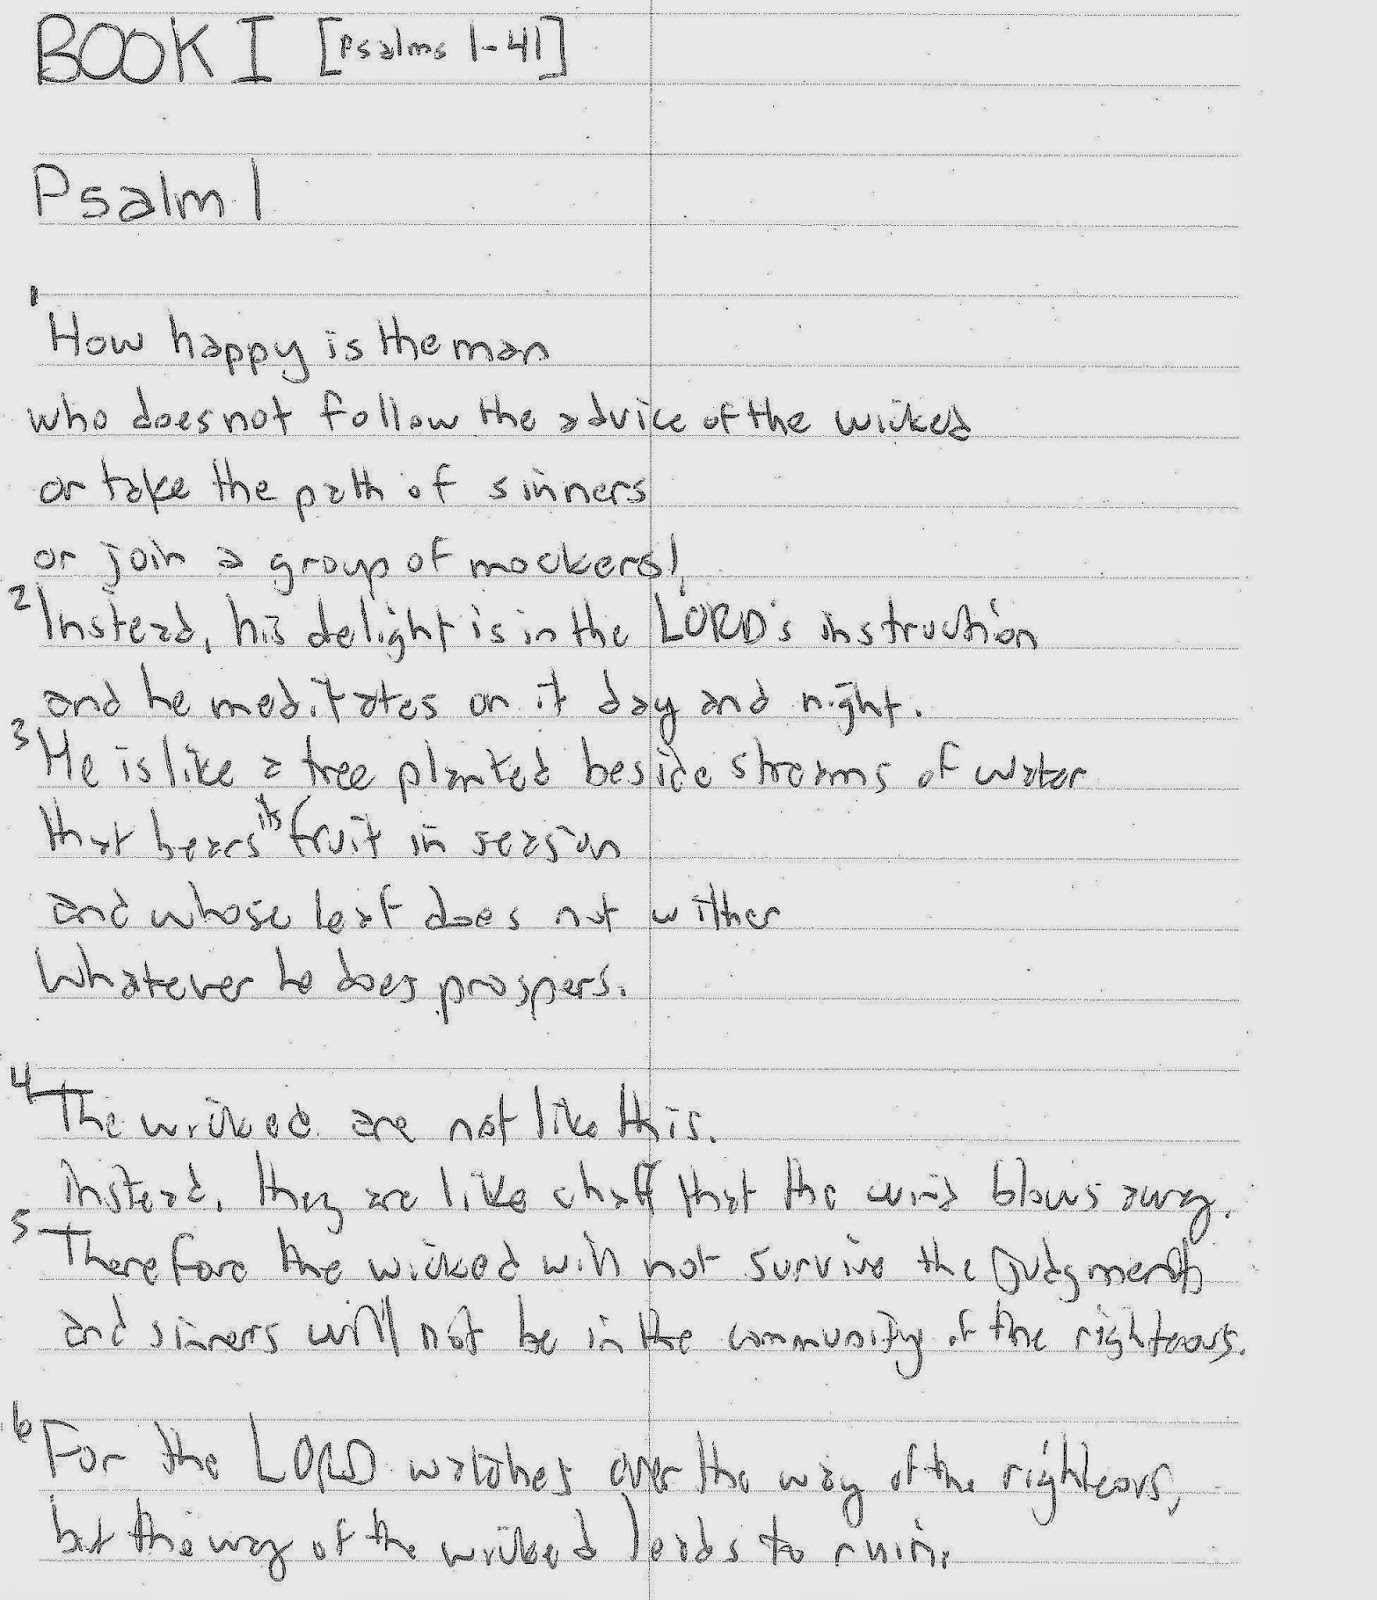 BOOK I [Psalms 1-41]
Psalm 1
1 How happy is the man
who does not follow the advice of the wicked
or take the path of sinners
or join a group of mockers!
2 Instead, his delight is in the LORD's instruction
and he meditates on it day and night.
3 He is like a tree planted beside streams of water
that bears its fruit in season
and whose leaf does not wither
Whatever he does prospers.
4 The wicked are not like this.
instead, they are like chaff that the wind blows away.
5 Therefore the wicked will not survive the judgment
and sinners will not be in the community of the righteous.
6 For the LORD watches over the way of the righteous,
but the way of the wicked leads to ruin.